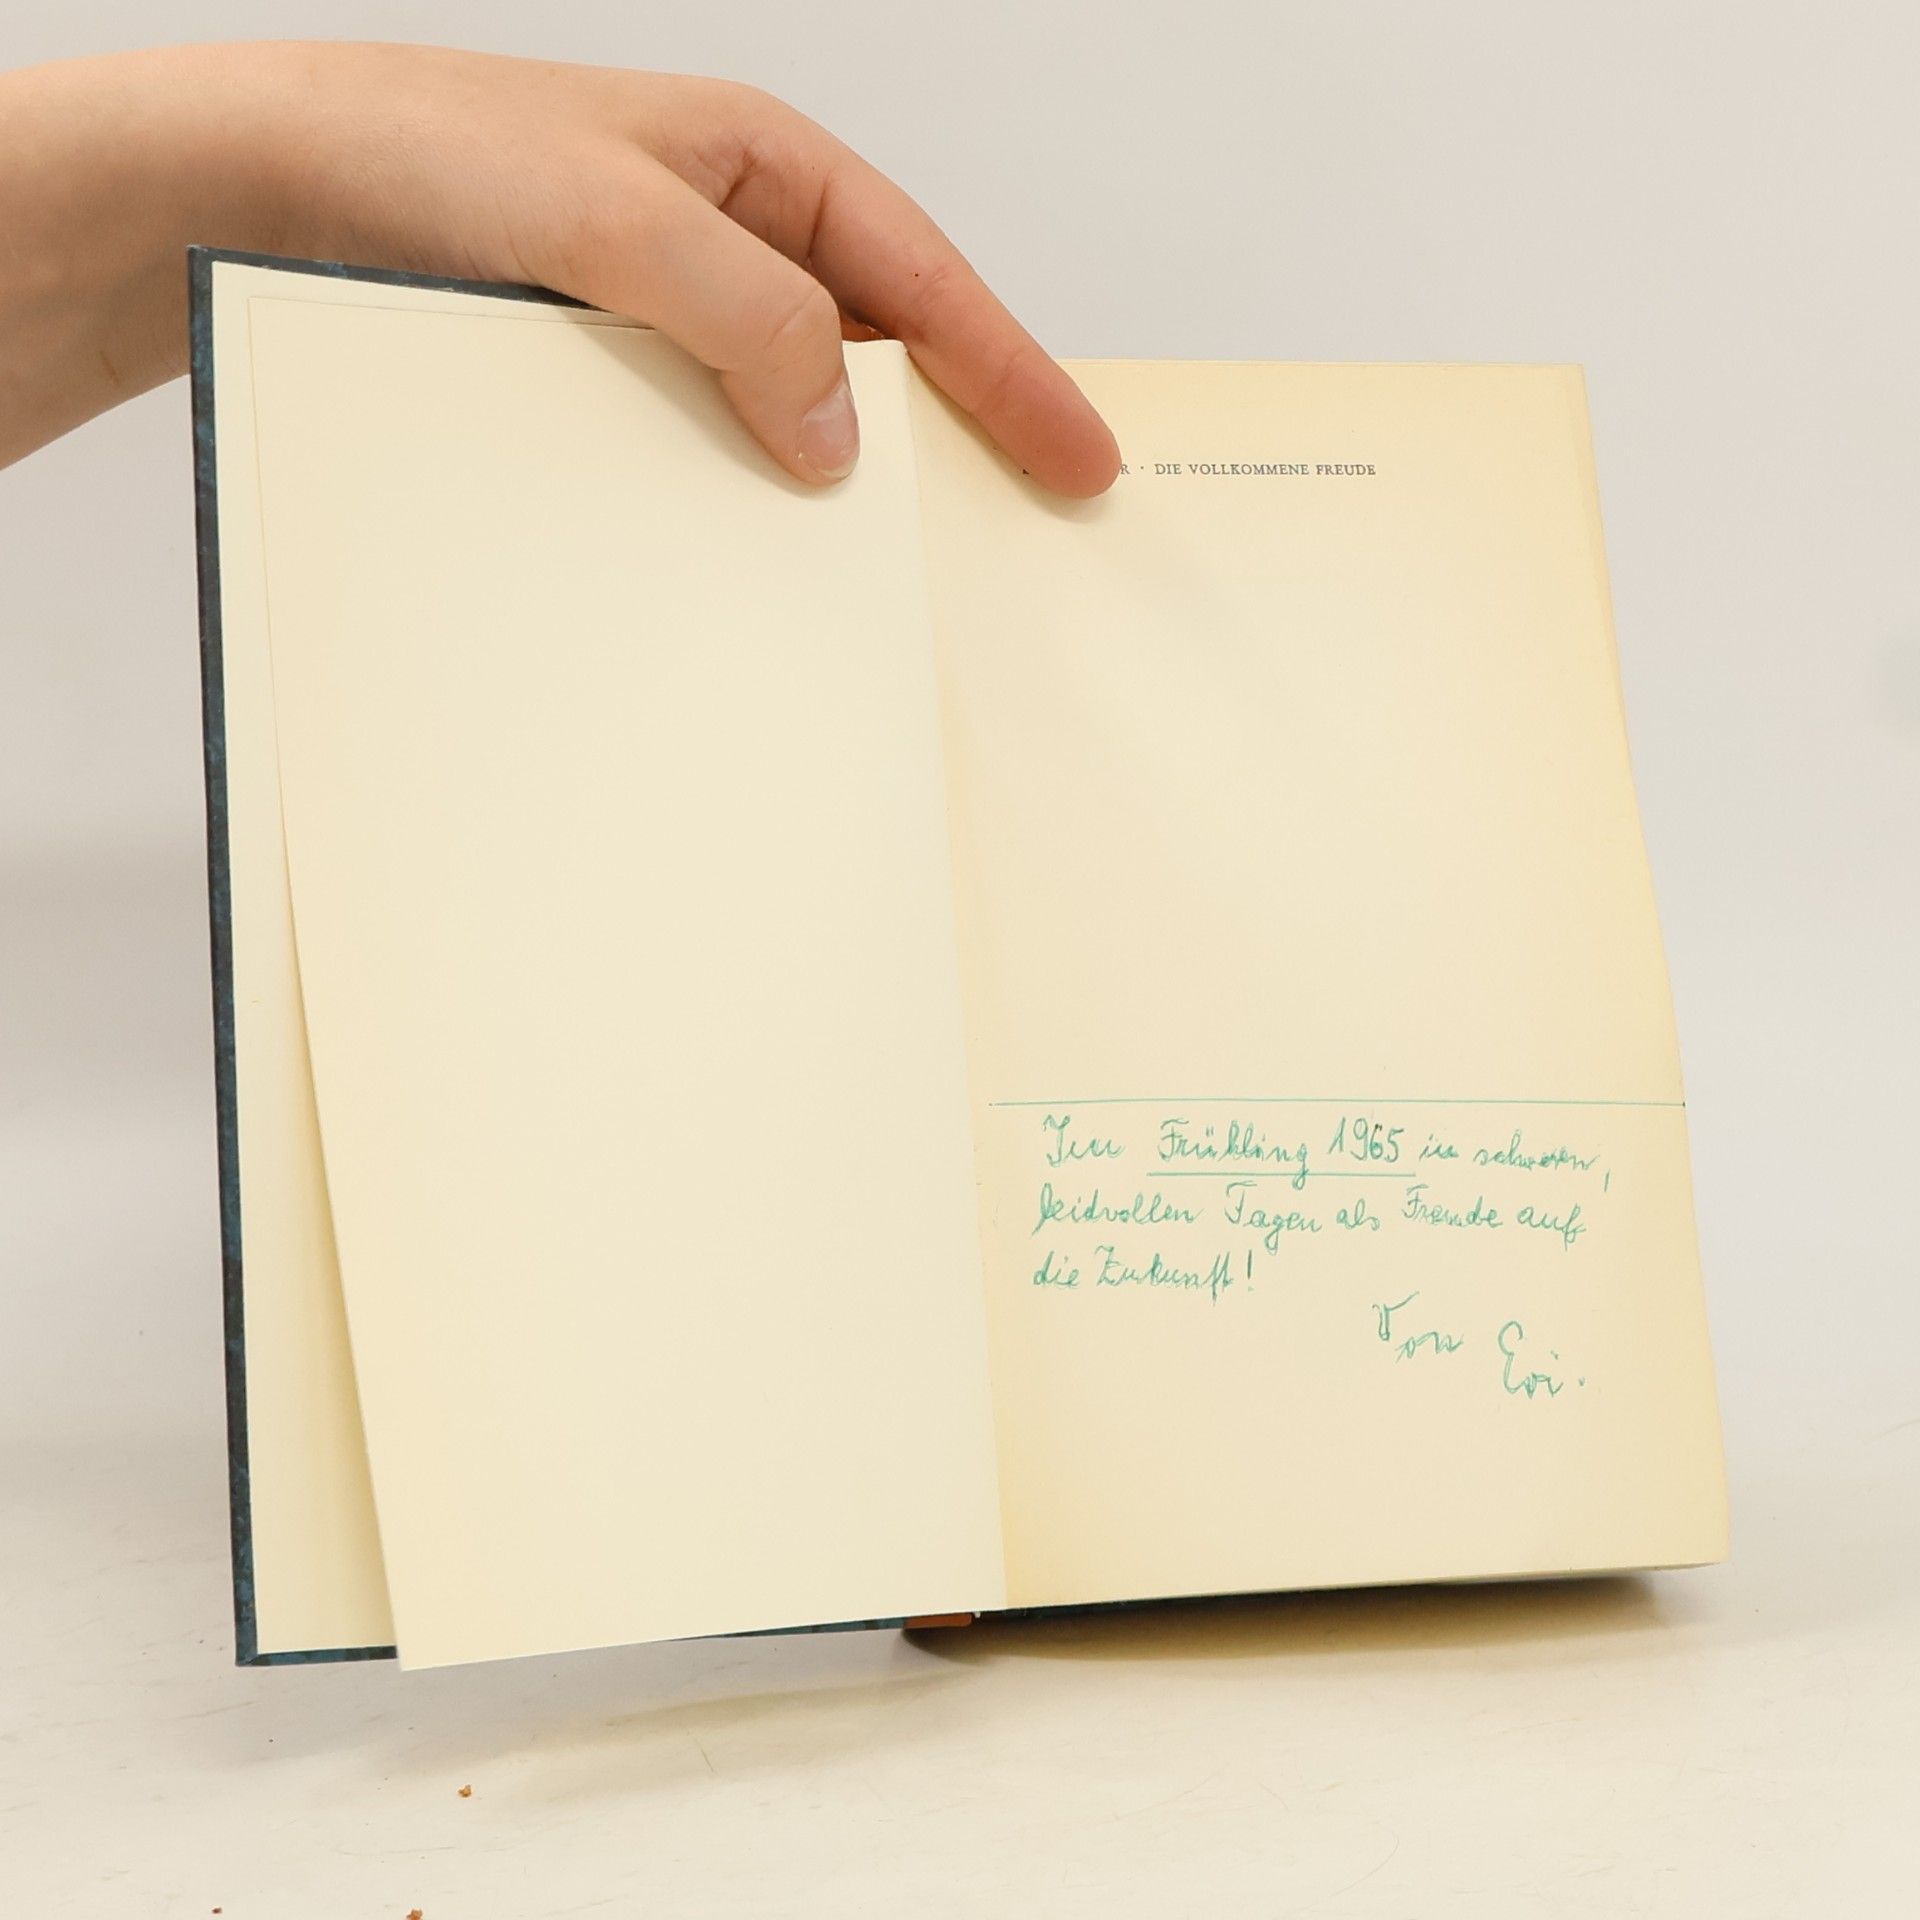 R · DIE VOLLKOMMENE FREUDE
Im Frühling 1965 in schweren,
leidvollen Tagen als Freude auf
die Zukunft!
Von Evi.